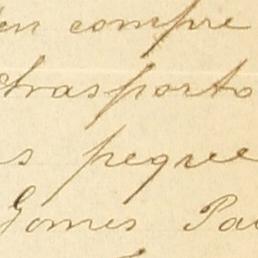 en compre
trasporto
s peque
Gomes Pa